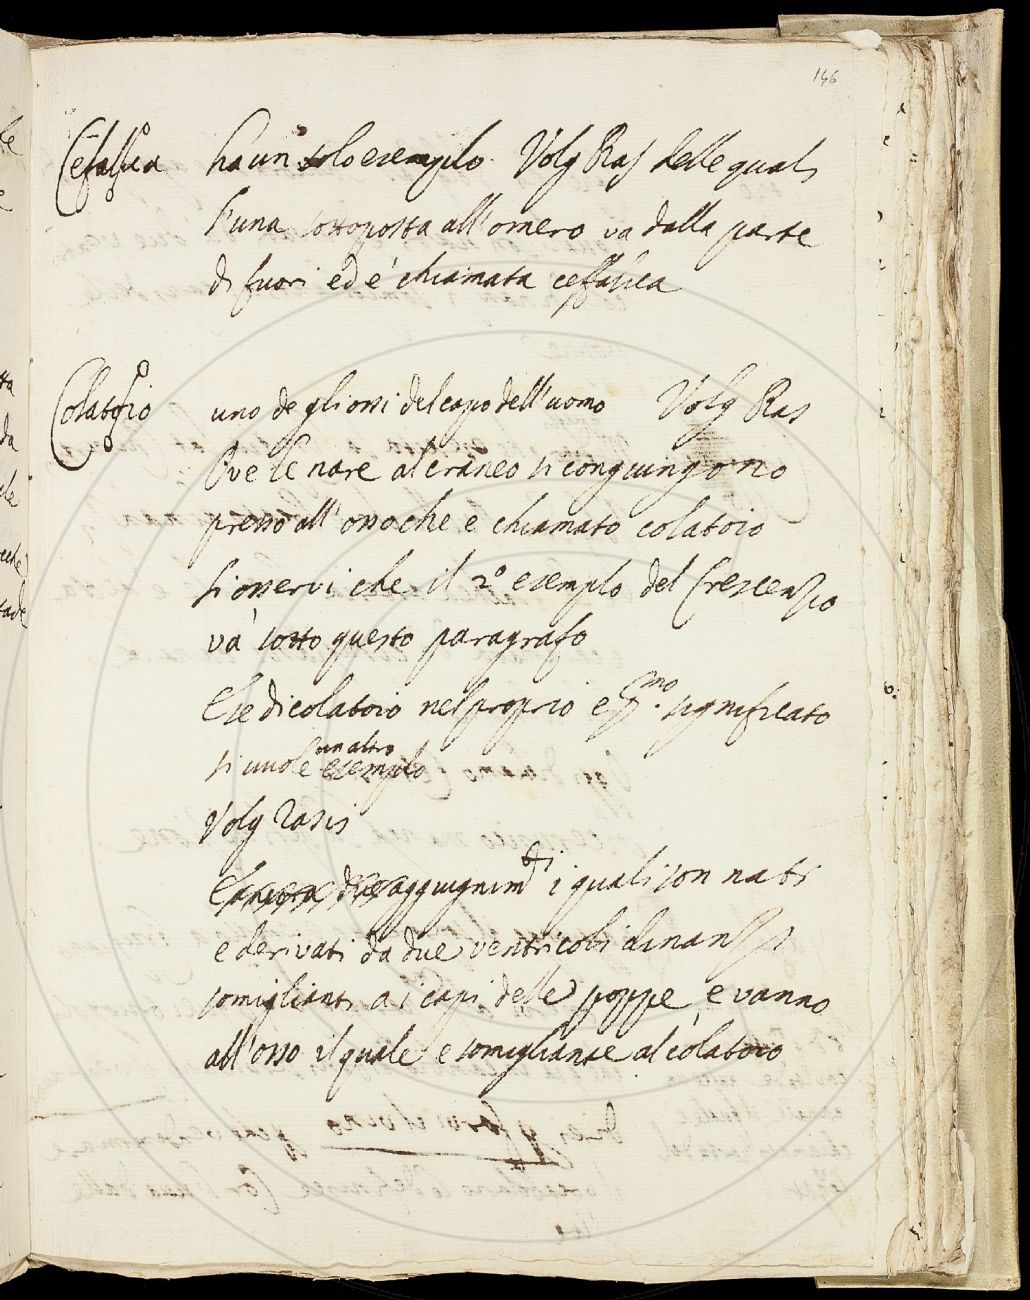 146
Cefalica ha un solo esemplo. Volg Ras delle quali
l'una sottoposta all'omero va dalla parte
di fuori ed è chiamata ceffalica
Colatoio uno degli ossi del capo dell'uomo Volg Ras
Ove le nare al craneo si congiungono
presso all'osso che e chiamato colatoio
si osservi che il 2º esemplo del Crescenzio
và sotto questo paragrafo
E se di colatoio nel proprio e pmo. significato
si vuole un altro esemplo
Volg Rasis
E ancora due aggiugnimti i quali son nati
e derivati da due ventricoli dinanzi
somiglianti a i capi delle poppe, e vanno
all'osso il quale e somigliante al colatoio